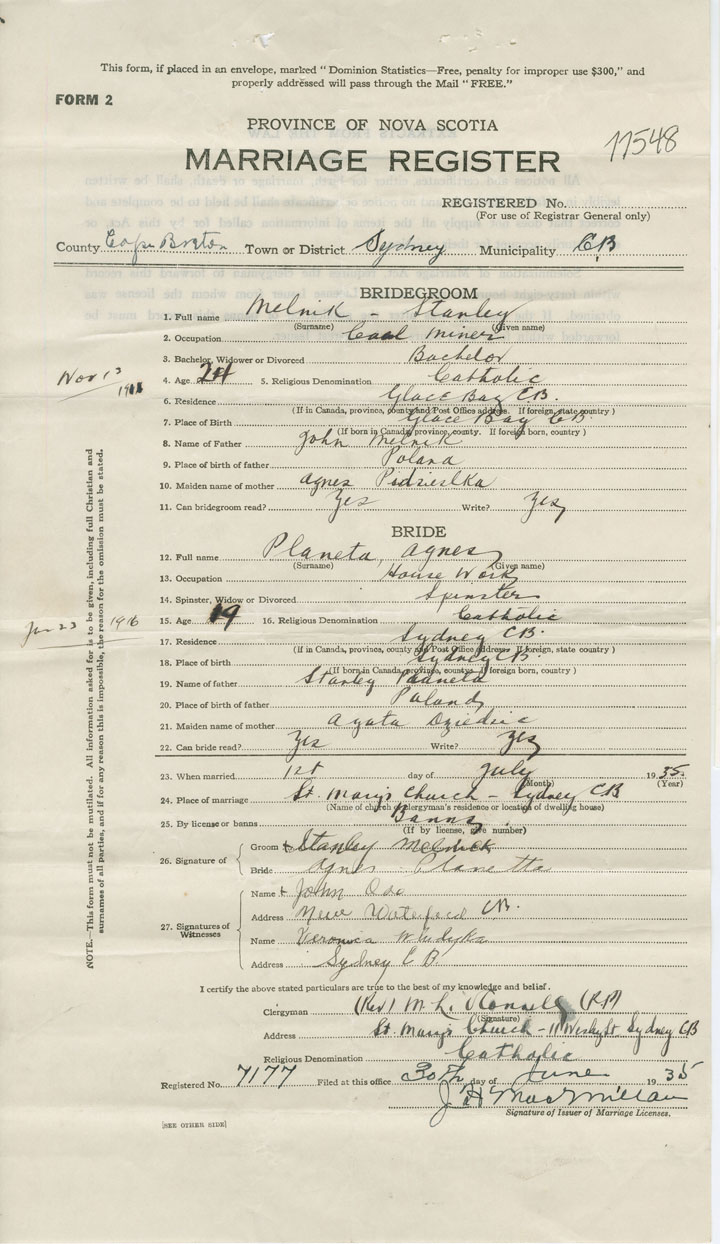 This form, if placed in an envelope, marked "Dominion Statistics—Free, penalty for improper use $300," and
properly addressed will pass through the Mail "FREE."
FORM 2
PROVINCE OF NOVA SCOTIA
11548
MARRIAGE REGISTER
REGISTERED No.
(For use of Registrar General only)
County Cape Breton Town or District Sydney Municipality C.B
BRIDEGROOM
1. Full name Melnik - Stanley
(Surname) (Given name)
2. Occupation Coal miner
3. Bachelor, Widower or Divorced Bachelor
Nov 13
4. Age 24 5. Religious Denomination Catholic
6. Residence Glace Bay C.B.
(If in Canada, province, county and Post Office address. If foreign, state country )
7. Place of Birth Glace Bay C.B.
(If born in Canada, province, county. If foreign born, country )
8. Name of Father John Melnik
9. Place of birth of father Poland
10. Maiden name of mother Agnes
11. Can bridegroom read? Yes Write? Yes
BRIDE
12. Full name Planeta, Agnes
(Surname) (Given name)
13. Occupation House Work
14. Spinster, Widow or Divorced Spinster
Jan 23 1916
15. Age 19 16. Religious Denomination Catholic
17. Residence Sydney C.B.
(If in Canada, province, county and Post Office address. If foreign, state country )
18. Place of birth Sydney C.B.
(If born in Canada, province, county. If foreign born, country )
19. Name of father Stanley
20. Place of birth of father Poland
21. Maiden name of mother Agata
22. Can bride read? Yes Write? Yes
23. When married 1st day of July 1935
(Month) (Year)
24. Place of marriage St. Mary's Church - Sydney CB
(Name of church or clergyman's residence or location of dwelling house)
25. By license or banns Banns
(If by license, give number)
26. Signature of
Groom + Stanley Melnick
Bride Agnes Planetta
27. Signatures of Witnesses
Name + John
Address New Waterford C.B.
Name Veronica
Address Sydney C B.
I certify the above stated particulars are true to the best of my knowledge and belief.
Clergyman (Rev) M. L. O'Connell (R.P)
(Signature)
Address St. Mary's Church - 11 Wesley St. Sydney CB
Religious Denomination Catholic
Registered No. 7177 Filed at this office 30th day of June 1935
J H MacMillan
Signature of Issuer of Marriage Licenses.
[SEE OTHER SIDE]
NOTE.—This form must not be mutilated. All information asked for is to be given, including full Christian and
surnames of all parties, and if for any reason this is impossible, the reason for the omission must be stated.